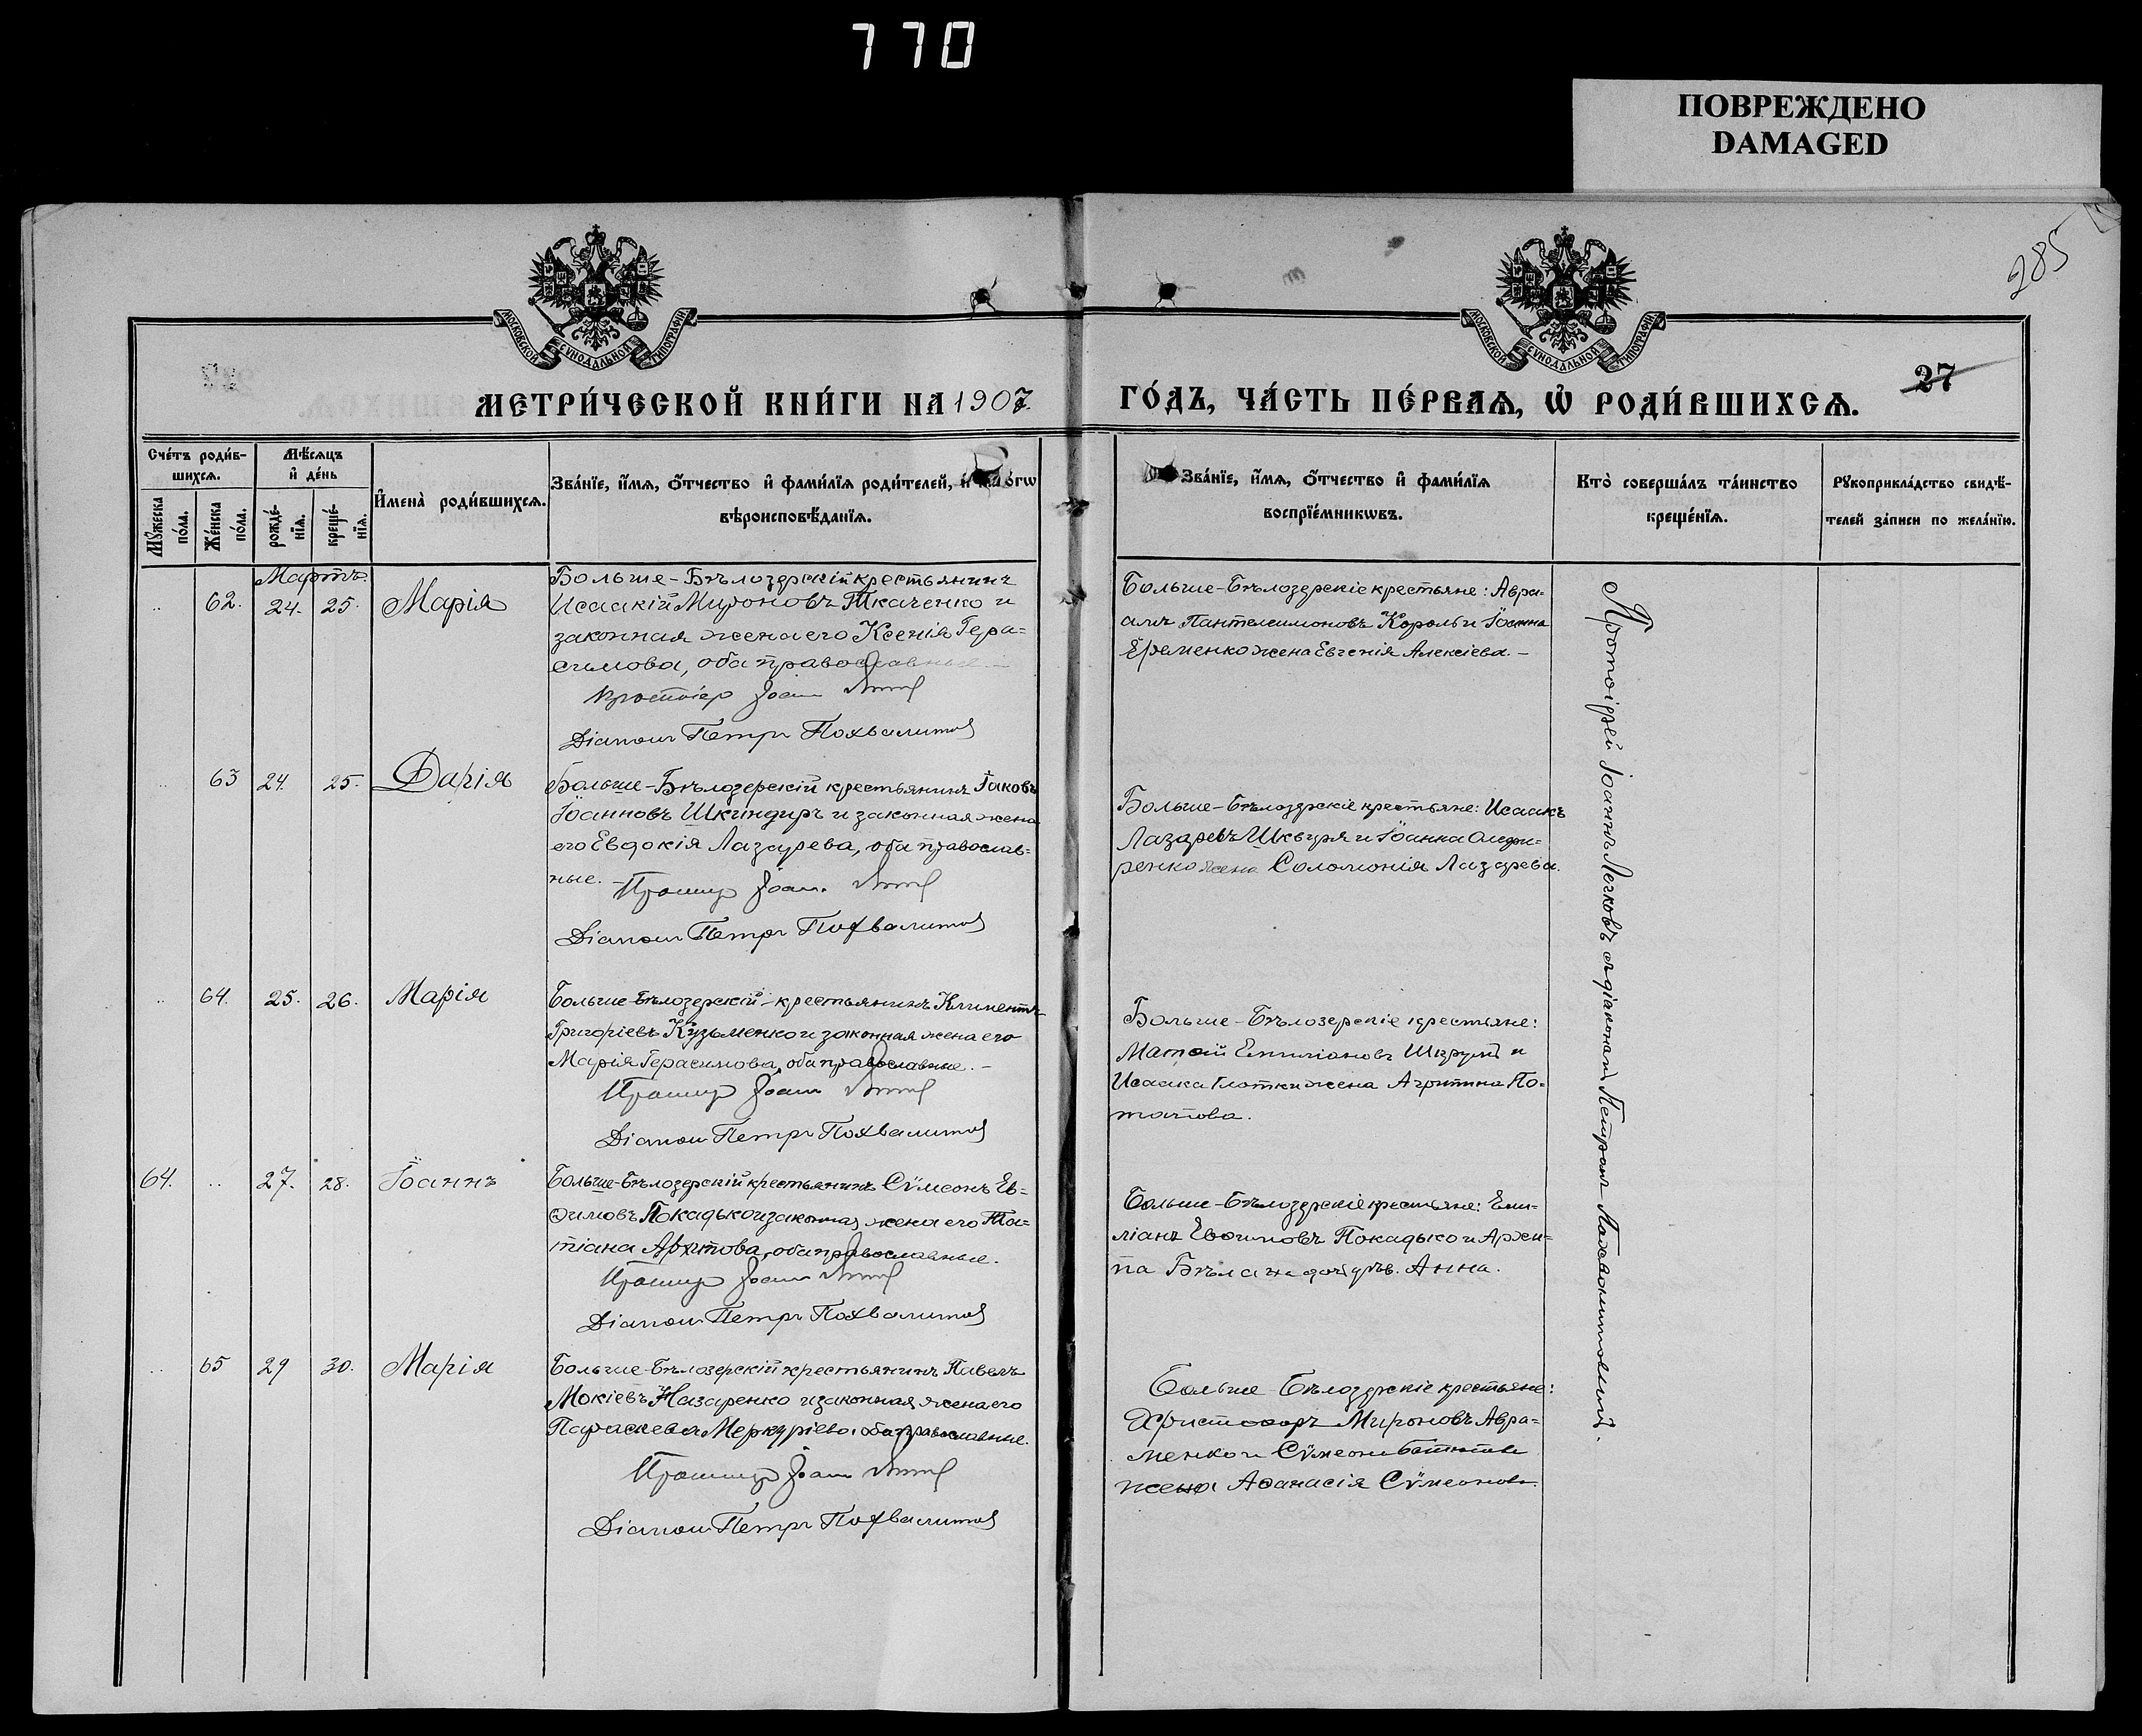 770
ПОВРЕЖДЕНО
DAMAGED
285
МОСКОВСКОЙ СѴНОДАЛЬНОЙ ТИПОГРАФІИ
МОСКОВСКОЙ СѴНОДАЛЬНОЙ ТИПОГРАФІИ
27
МЕТРИ́ЧЕСКОЙ КНИ́ГИ НА 1907.
ГО́ДЪ, ЧА́СТЬ ПЕ́РВАѦ, Ѡ҆ РОДИ́ВШИХСѦ.
Сче́тъ роди́в-
шихсѧ.
Мѣ́сѧцъ
и҆ де́нь
Мꙋ́жеска по́ла.
Же́нска по́ла.
рожде́-
нїѧ.
креще́-
нїѧ.
И҆мена̀ роди́вшихсѧ.
Зва́нїе, и҆́мѧ, ѻ҆́тчество и҆ фами́лїѧ роди́телей, и҆
вѣроисповѣ́данїѧ.
Зва́нїе, и҆́мѧ, ѻ҆́тчество и҆ фами́лїѧ
воспрїе́мникѡвъ.
Кто̀ соверша́лъ та́инство
креще́нїѧ.
Рꙋкоприкла́дство свидѣ́-
телей за́писи по жела́нїю.
Мартъ.
62. 24. 25. Марія
Больше-Бѣлозерскій крестьянинъ
Исаакій Мироновъ Ткаченко и
законная жена его Ксенія Гера-
симова, оба православные.-
Протоіер Іоаннъ
Діаконъ Петръ Похвалитов
Больше-Бѣлозерскіе крестьяне: Авра-
амъ Пантелеимоновъ Король и Іоанна
Еременко жена Евгенія Алексіева.-
63 24. 25. Дарія
Больше-Бѣлозерскій крестьянинъ Іаковъ
Іоанновъ Шкиндиръ и законная жена
его Евдокія Лазарева, оба православ-
ные.-
Іоан.
Діаконъ Петръ Похвалитов
Больше-Бѣлозерскіе крестьяне: Исаакъ
Лазаревъ Шквуря и Іоанна Олефи-
ренко жена Соломонія Лазарева.
64. 25. 26. Марія
Больше-Бѣлозерскій-крестьянинъ Климентъ
Григоріевъ Кузьменко и законная жена его
Марія Герасимова, оба православные.-
Іоанн
Діаконъ Петръ Похвалитов
Больше-Бѣлозерскіе крестьяне:
Матѳій Емиліановъ и
Исаака Глотки жена Агрипина По-
тапова.
64. 27. 28. Іоаннъ
Больше-Бѣлозерскій крестьянинъ Сѵмеонъ Ев-
ѳимовъ Покадько и законная жена его Та-
тіана Архипова, оба православные.
Іоанн
Діаконъ Петръ Похвалитов
Больше-Бѣлозерскіе крестьяне: Еми-
ліанъ Евѳимовъ Покадько и Архи-
па дочь дѣв. Анна.
65 29 30. Марія
Больше-Бѣлозерскій крестьянинъ Павелъ
Мокіевъ Назаренко и законная жена его
Параскева Меркуріева оба православные.
Іоанн
Діаконъ Петръ Похвалитов
Больше-Бѣлозерскіе крестьяне:
Христофоръ Мироновъ Авра-
менко и Сѵмеона
жена Аѳанасія Сѵмеонова.
Протоіерей Іоаннъ съ діакономъ Петромъ Похвалитовымъ.